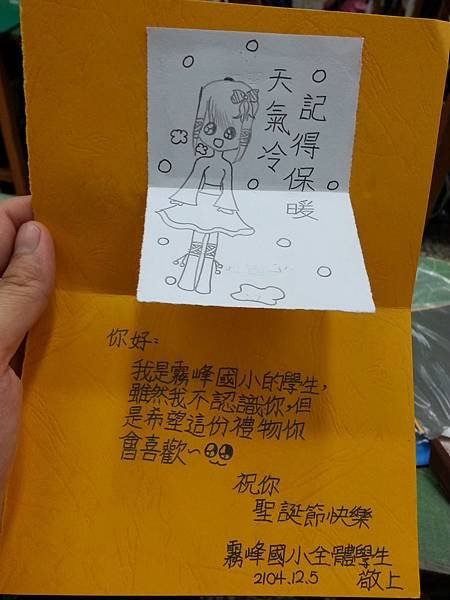 天氣冷
記得保暖
你好：
我是霧峰國小的學生，
雖然我不認識你，但
是希望這份禮物你
會喜歡~
祝你
聖誕節快樂
霧峰國小全體學生
2104.12.5 敬上